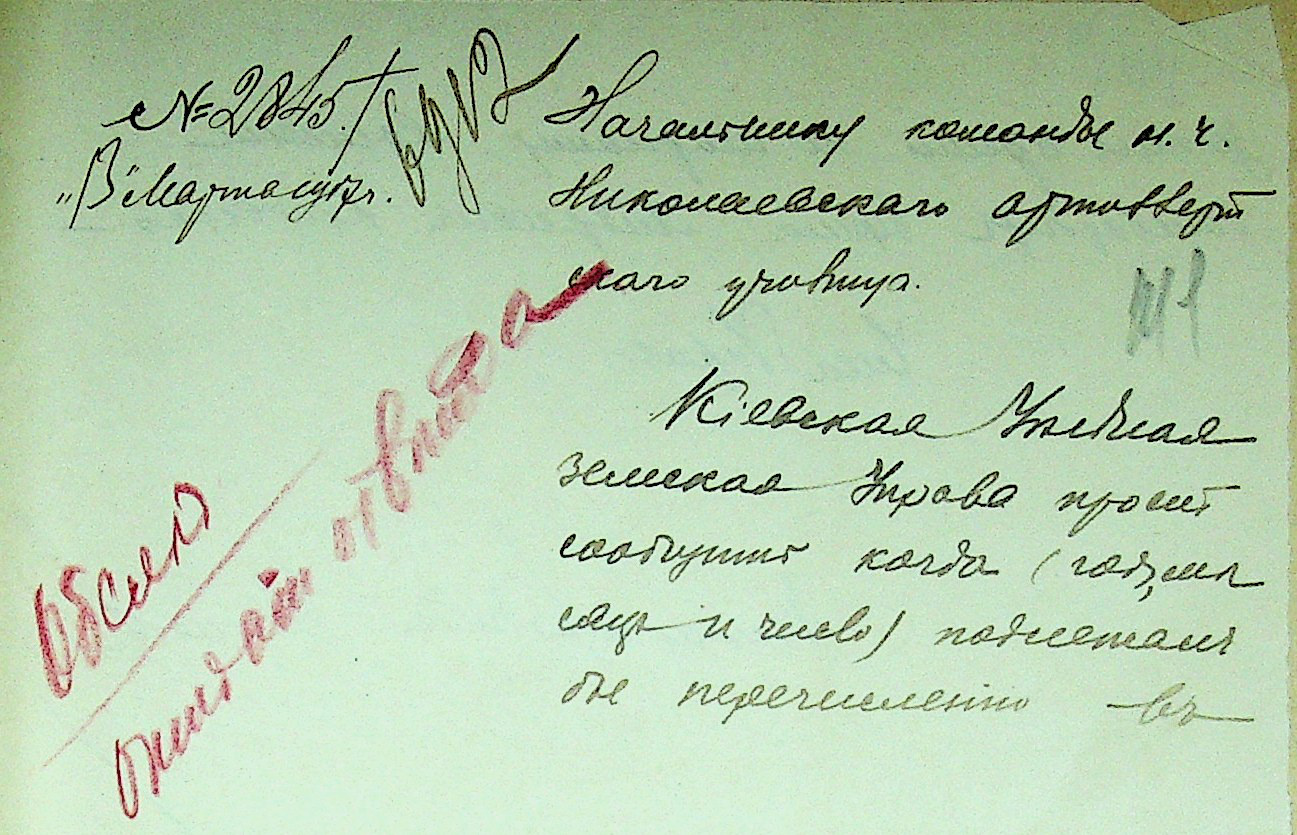 № 2845.
"13" Марта 1917 г.
Начальнику команды н. ч.
Николаевскаго артиллерій
скаго училища.
Кіевская Уѣздная
Земская Управа проситъ
сообщить когда (годъ, мѣ
сяцъ и число) подлежали
бы перечисленію въ
ожидать отвѣта